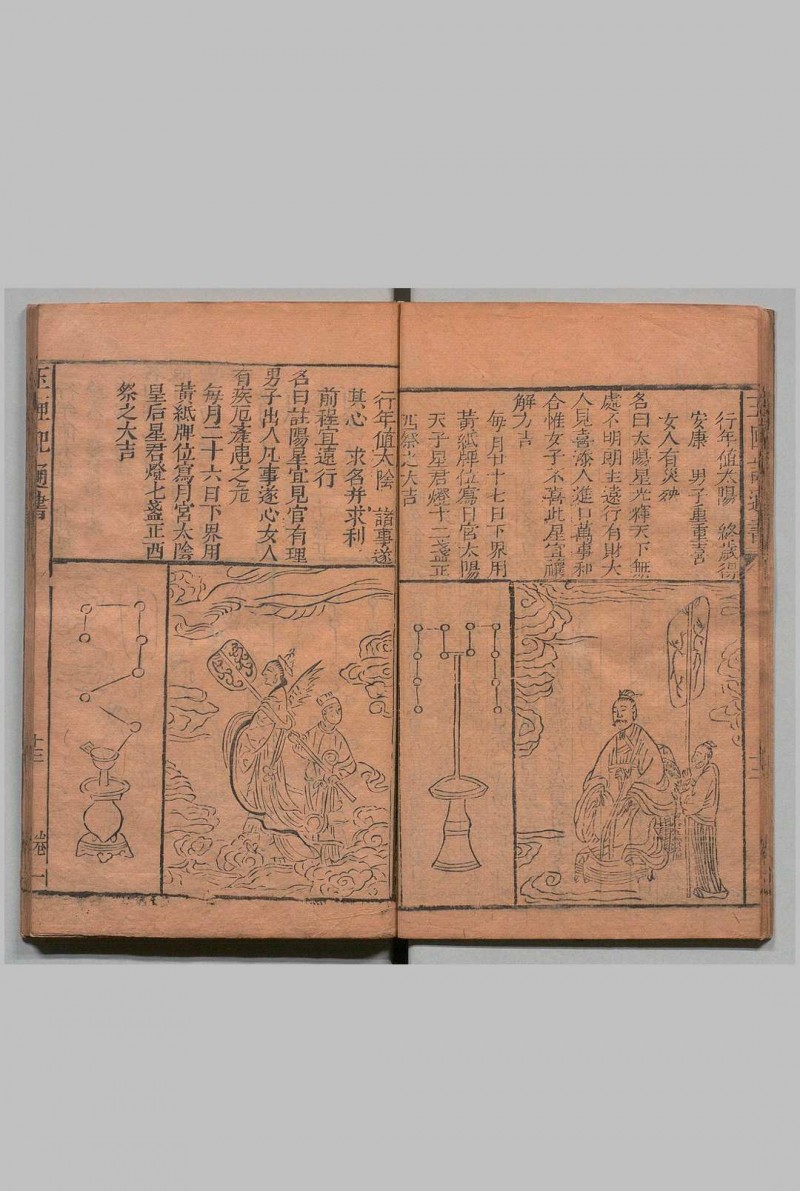 行年值太陽　終歲得
安康　男子重重喜
女人有災殃
名曰太陽星光輝天下無
處不明朗主遠行有財大
人見喜添人進口萬事和
合惟女子不喜此星宜禳
解乃吉
每月廿十七日下界用
黃紙牌位寫日宮太陽
天子星君燈十二盞正
西祭之大吉
行年值太陰　諸事遂
其心　求名并求利
前程宜遠行
名曰註陽星宜見官有理
男子出入凡事遂心女人
有疾厄產事之危
每月二十六日下界用
黃紙牌位寫月宮太陰
皇后星君燈七盞正西
祭之大吉
玉匣記通書
十三
卷一